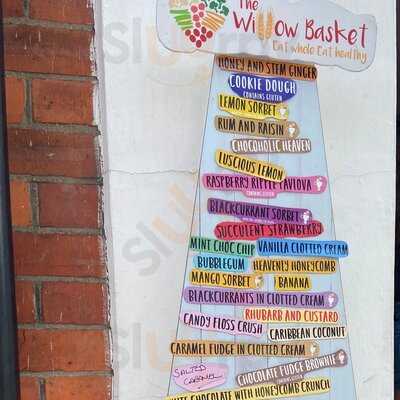 The
Willow Basket
Eat whole Eat healthy
HONEY AND STEM GINGER
COOKIE DOUGH
CONTAINS GLUTEN
LEMON SORBET
RUM AND RAISIN
CHOCOHOLIC HEAVEN
LUSCIOUS LEMON
RASPBERRY RIPPLE PAVLOVA
BLACKCURRANT SORBET
SUCCULENT STRAWBERRY
MINT CHOC CHIP VANILLA CLOTTED CREAM
BUBBLEGUM HEAVENLY HONEYCOMB
MANGO SORBET BANANA
BLACKCURRANTS IN CLOTTED CREAM
RHUBARB AND CUSTARD
CANDY FLOSS CRUSH
CARIBBEAN COCONUT
CARAMEL FUDGE IN CLOTTED CREAM
CHOCOLATE FUDGE BROWNIE
SALTED
CARAMEL
WHITE CHOCOLATE WITH HONEYCOMB CRUNCH